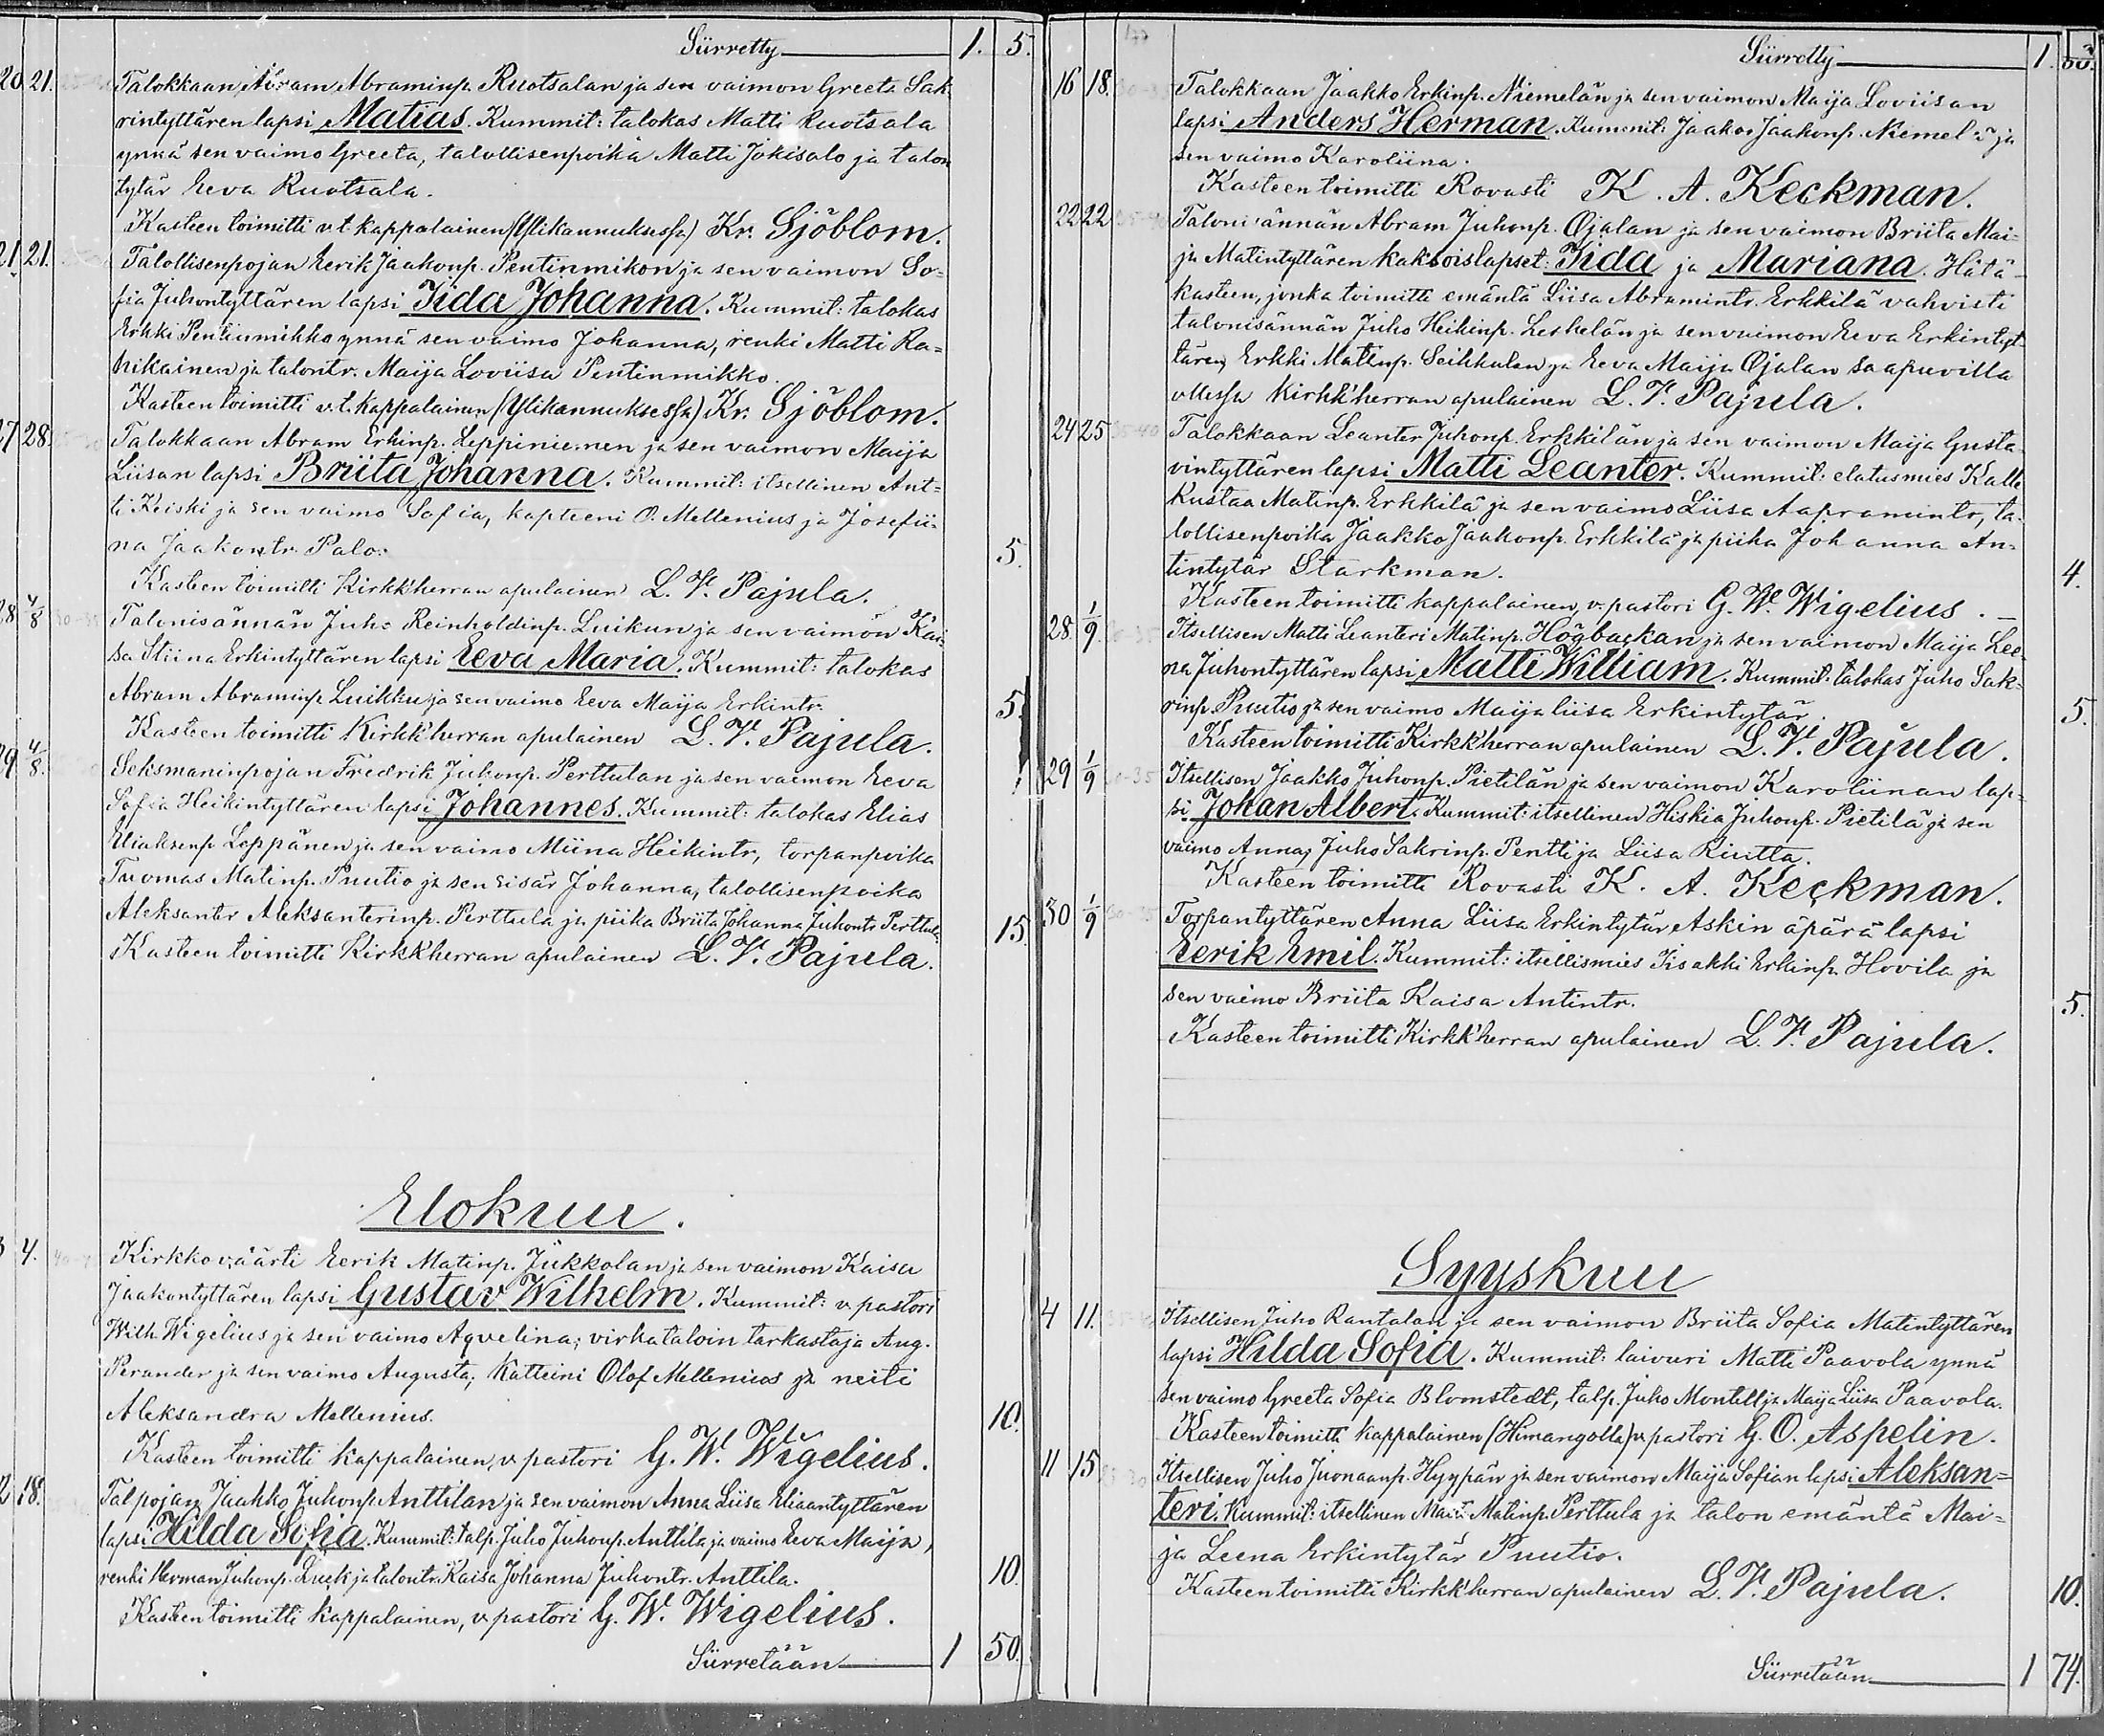 Siirretty 1. 5.
20 21. Talokkaan Abram Abraminp. Ruotsalan ja sen vaimon Greeta Sak-
rintyttären lapsi Matias. Kummit: talokas Matti Ruotsala
ynnä sen vaimo Greeta, talollisenpoika Matti Jokisalo ja talon
tytär Eeva Ruotsala.
Kasteen toimitti v.t. kappalainen (Ylikannuksessa) Kr. Sjöblom.
21 21. Talollisenpojan Eerik Jaakonp. Pentinmikon ja sen vaimon So=
fia Juhontyttären lapsi Iida Johanna. Kummit: talokas
Erkki Pentinmikko ynnä sen vaimo Johanna, renki Matti Ra=
nikainen ja talontr. Maija Loviisa Pentinmikko.
Kasteen toimitti v.t. kappalainen (Ylikannuksessa) Kr. Sjöblom.
27 28. Talokkaan Abram Erkinp. Leppiniemen ja sen vaimon Maija
Liisan lapsi Briita Johanna. Kummit: itsellinen Ant=
ti Keiski ja sen vaimo Sofia, kapteeni O. Mellenius ja Josefii=
na Jaakontr. Palo. 5.
Kasteen toimitti Kirkkherran apulainen L. V. Pajula.
28 4/8 Talonisännän Juho Reinholdinp. Luikun ja sen vaimon Kai=
sa Stiina Erkintyttären lapsi Eeva Maria. Kummit: talokas
Abram Abraminp. Luikku ja sen vaimo Eeva Maija Erkintr. 5.
Kasteen toimitti Kirkk'herran apulainen L. V. Pajula.
29 4/8. Seksmaninpojan Fredrik Juhonp. Perttulan ja sen vaimon Eeva
Sofia Heikintyttären lapsi Johannes. Kummit: talokas Elias
Eliaksenp. Leppänen ja sen vaimo Miina Heikintr, torpanpoika
Tuomas Matinp. Puutio ja sen sisar Johanna, talollisenpoika
Aleksanter Aleksanterinp. Perttula ja piika Briita Johanna Juhontr Perttula. 15.
Kasteen toimitti Kirkkherran apulainen L. V. Pajula.
Elokuu.
3 4. Kirkkoväärti Eerik Matinp. Jukkolan ja sen vaimon Kaisa
Jaakontyttären lapsi Gustav Wilhelm. Kummit: v. pastori
Wilh. Wigelius ja sen vaimo Aqvelina; virkataloin tarkastaja Aug.
Perander ja sen vaimo Augusta; Katteini Olof Mellenius ja neiti
Aleksandra Mellenius. 10.
Kasteen toimitti kappalainen, v. pastori G. W. Wigelius.
12 18. Talpojan Jaakko Juhonp. Anttilan ja sen vaimon Anna Liisa Eliaantyttären
lapsi Hilda Sofia. Kummit: talp. Juho Juhonp. Anttila ja vaimo Eeva Maija,
renki Herman Juhonp. ja talontr. Kaisa Johanna Juhontr. Anttila. 10.
Kasteen toimitti kappalainen, v. pastori G. W. Wigelius.
Siirretään 1 50.
Siirretty 1. 50.
16 18. Talokkaan Jaakko Erkinp. Niemelän ja sen vaimon Maija Loviisan
lapsi Anders Herman. Kummit: Jaakos Jaakonp. Niemelä ja
sen vaimo Karoliina.
Kasteen toimitti Rovasti K. A. Keckman.
22 22 Talonisännän Abram Juhonp. Ojalan ja sen vaimon Briita Mai=
ja Matintyttären kaksoislapset: Iida ja Mariana. Hätä-
kasteen, jonka toimitti emäntä Liisa Abramintr. Erkkilä vahvisti
talonisännän Juho Heikinp. Leskelän ja sen vaimon Eeva Erkintyt-
tären, Erkki Matinp. Seikkulan ja Eeva Maija Ojalan saapuvilla
ollessa Kirkk'herran apulainen L. V. Pajula.
24 25 Talokkaan Leanter Juhonp. Erkkilän ja sen vaimon Maija Gusta-
vintyttären lapsi Matti Leanter. Kummit: elatusmies Kalle
Kustaa Matinp. Erkkilä ja sen vaimo Liisa Aapramintr, ta-
lollisenpoika Jaakko Jaakonp. Erkkilä ja piika Johanna An=
tintytär Starkman. 4.
Kasteen toimitti kappalainen, v. pastori G. W. Wigelius.
28. 1/9. Itsellisen Matti Leanteri Matinp. Högbackan ja sen vaimon Maija Lee=
na Juhontyttären lapsi Matti William. Kummit: talokas Juho Sak=
rinp. Puutio ja sen vaimo Maijaliisa Erkintytär. 5.
Kasteen toimitti Kirkkherran apulainen L. V. Pajula.
29 1/9 Itsellisen Jaakko Juhonp. Pietilän ja sen vaimon Karoliinan lap=
si Johan Albert. Kummit: itsellinen Hiskia Juhonp. Pietilä ja sen
vaimo Anna; Juho Sakrinp. Pentti ja Liisa Riutta.
Kasteen toimitti Rovasti K. A. Keckman.
30 1/9 Torpantyttären Anna Liisa Erkintytär Askin äpärä lapsi
Eerik Emil. Kummit: itsellismies Iisakki Erkinp. Hovila ja
sen vaimo Briita Kaisa Antintr. 5.
Kasteen toimitti Kirkk'herran apulainen L. V. Pajula.
Syyskuu
4 11. Itsellisen Juho Rantalan ja sen vaimon Briita Sofia Matintyttären
lapsi Hilda Sofia. Kummit: laivuri Matti Paavola ynnä
sen vaimo Greeta Sofia Blomstedt, talp. Juho Montell ja Maija Liisa Paavola.
Kasteen toimitti kappalainen (Himangolla) v. pastori G. O. Aspelin.
11 15 Itsellisen Juho Juonaanp. Hyypän ja sen vaimon Maija Sofian lapsi Aleksan=
teri. Kummit: itsellinen Matti Matinp. Perttula ja talon emäntä Mai=
ja Leena Erkintytär Puutio.
Kasteen toimitti Kirkk'herran apulainen L. V. Pajula. 10.
Siirretään 1 74.